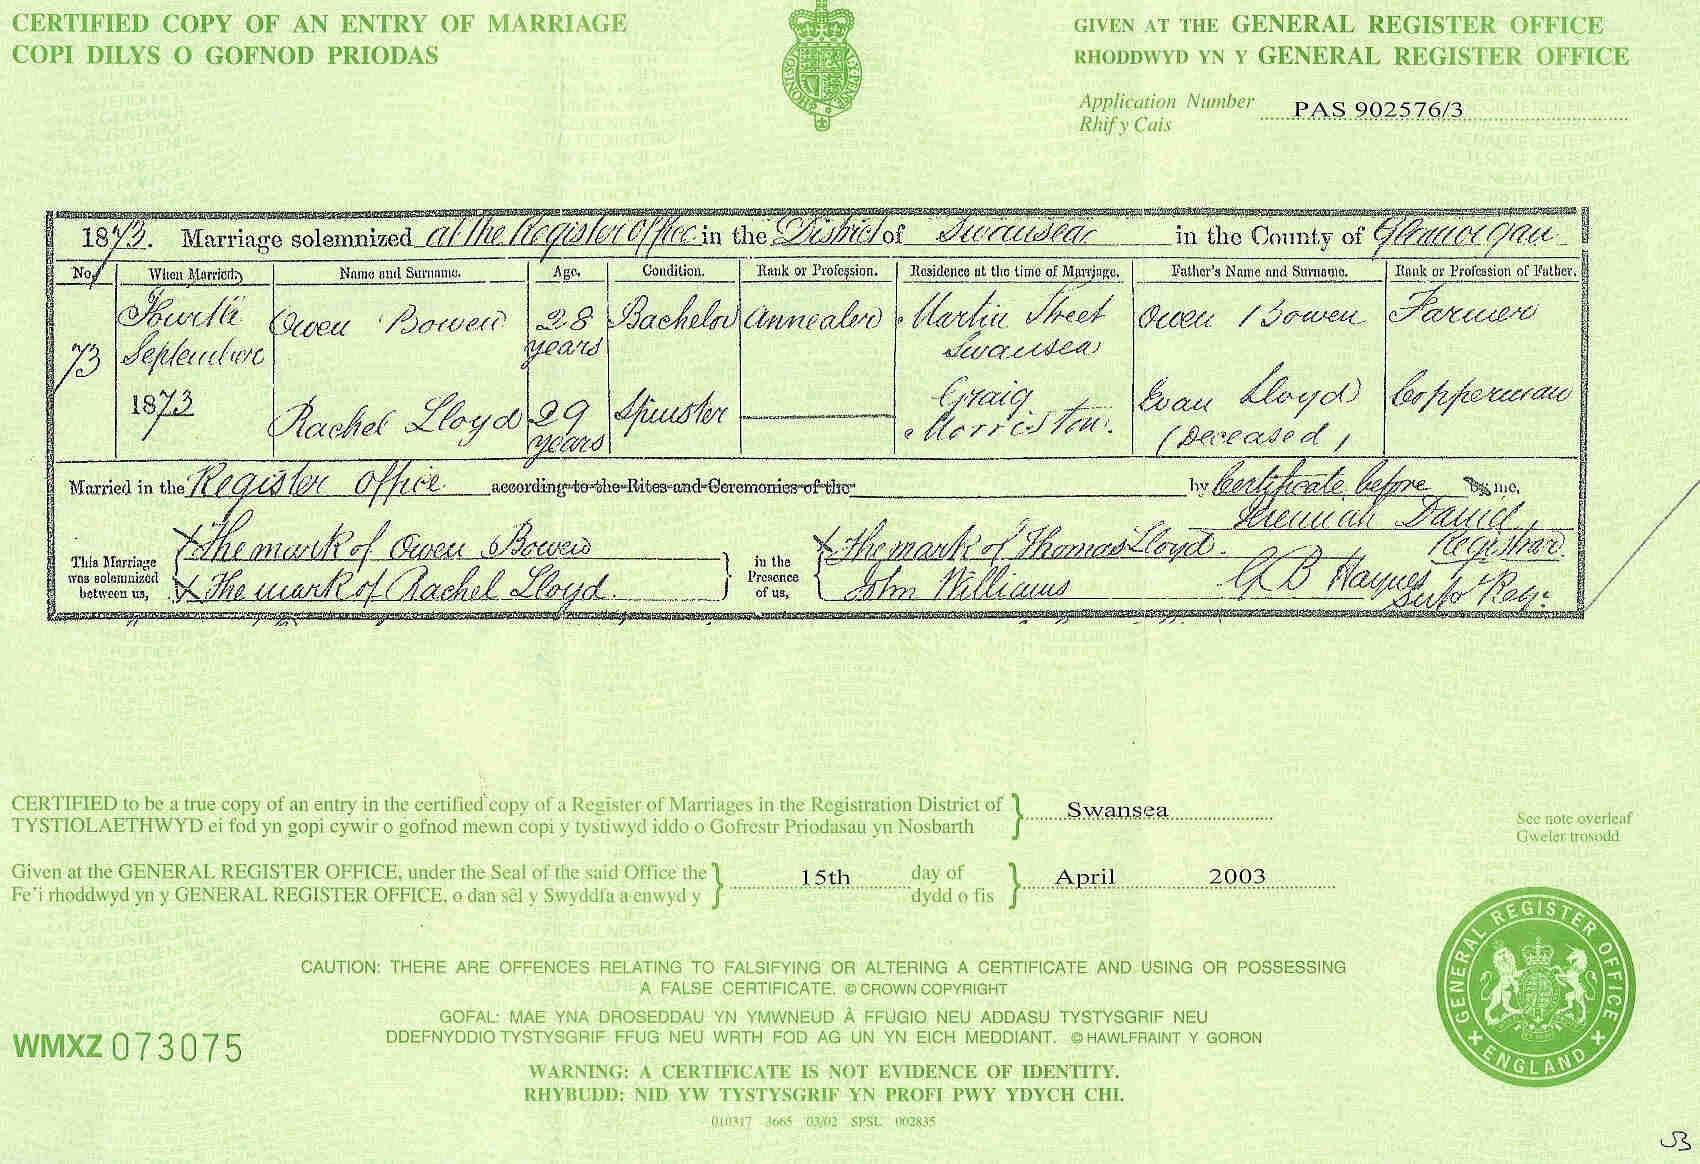 CERTIFIED COPY OF AN ENTRY OF MARRIAGE
COPI DILYS O GOFNOD PRIODAS
GIVEN AT THE GENERAL REGISTER OFFICE
RHODDWYD YN Y GENERAL REGISTER OFFICE
Application Number PAS 902576/3
Rhif y Cais
1873. Marriage solemnized at the Register Office in the District of Swansea in the County of Glamorgan
No. When Married. Name and Surname. Age. Condition. Rank or Profession. Residence at the time of Marriage. Father's Name and Surname. Rank or Profession of Father.
73 Fourth September 1873
Owen Bowen 28 years Bachelor Annealer Martin Street Swansea Owen Bowen Farmer
Rachel Lloyd 29 years Spinster Graig Morriston. Evan Lloyd (Deceased) Copperman
Married in the Register Office according to the Rites and Ceremonies of the by Certificate before by me,
This Marriage was solemnized between us,
X The mark of Owen Bowen
X The mark of Rachel Lloyd.
in the Presence of us,
X The mark of Thomas Lloyd.
John Williams
Jeremiah David, Registrar.
G B Haynes Supt Regr.
CERTIFIED to be a true copy of an entry in the certified copy of a Register of Marriages in the Registration District of Swansea
TYSTIOLAETHWYD ei fod yn gopi cywir o gofnod mewn copi y tystiwyd iddo o Gofrestr Priodasau yn Nosbarth
See note overleaf
Gweler trosodd
Given at the GENERAL REGISTER OFFICE, under the Seal of the said Office the 15th day of April 2003
Fe'i rhoddwyd yn y GENERAL REGISTER OFFICE, o dan sêl y Swyddfa a enwyd y dydd o fis
CAUTION: THERE ARE OFFENCES RELATING TO FALSIFYING OR ALTERING A CERTIFICATE AND USING OR POSSESSING
A FALSE CERTIFICATE. © CROWN COPYRIGHT
GOFAL: MAE YNA DROSEDDAU YN YMWNEUD Â FFUGIO NEU ADDASU TYSTYSGRIF NEU
DDEFNYDDIO TYSTYSGRIF FFUG NEU WRTH FOD AG UN YN EICH MEDDIANT. © HAWLFRAINT Y GORON
WMXZ 073075
WARNING: A CERTIFICATE IS NOT EVIDENCE OF IDENTITY.
RHYBUDD: NID YW TYSTYSGRIF YN PROFI PWY YDYCH CHI.
010317 3665 03/02 SPSL 002835
GENERAL REGISTER OFFICE
ENGLAND